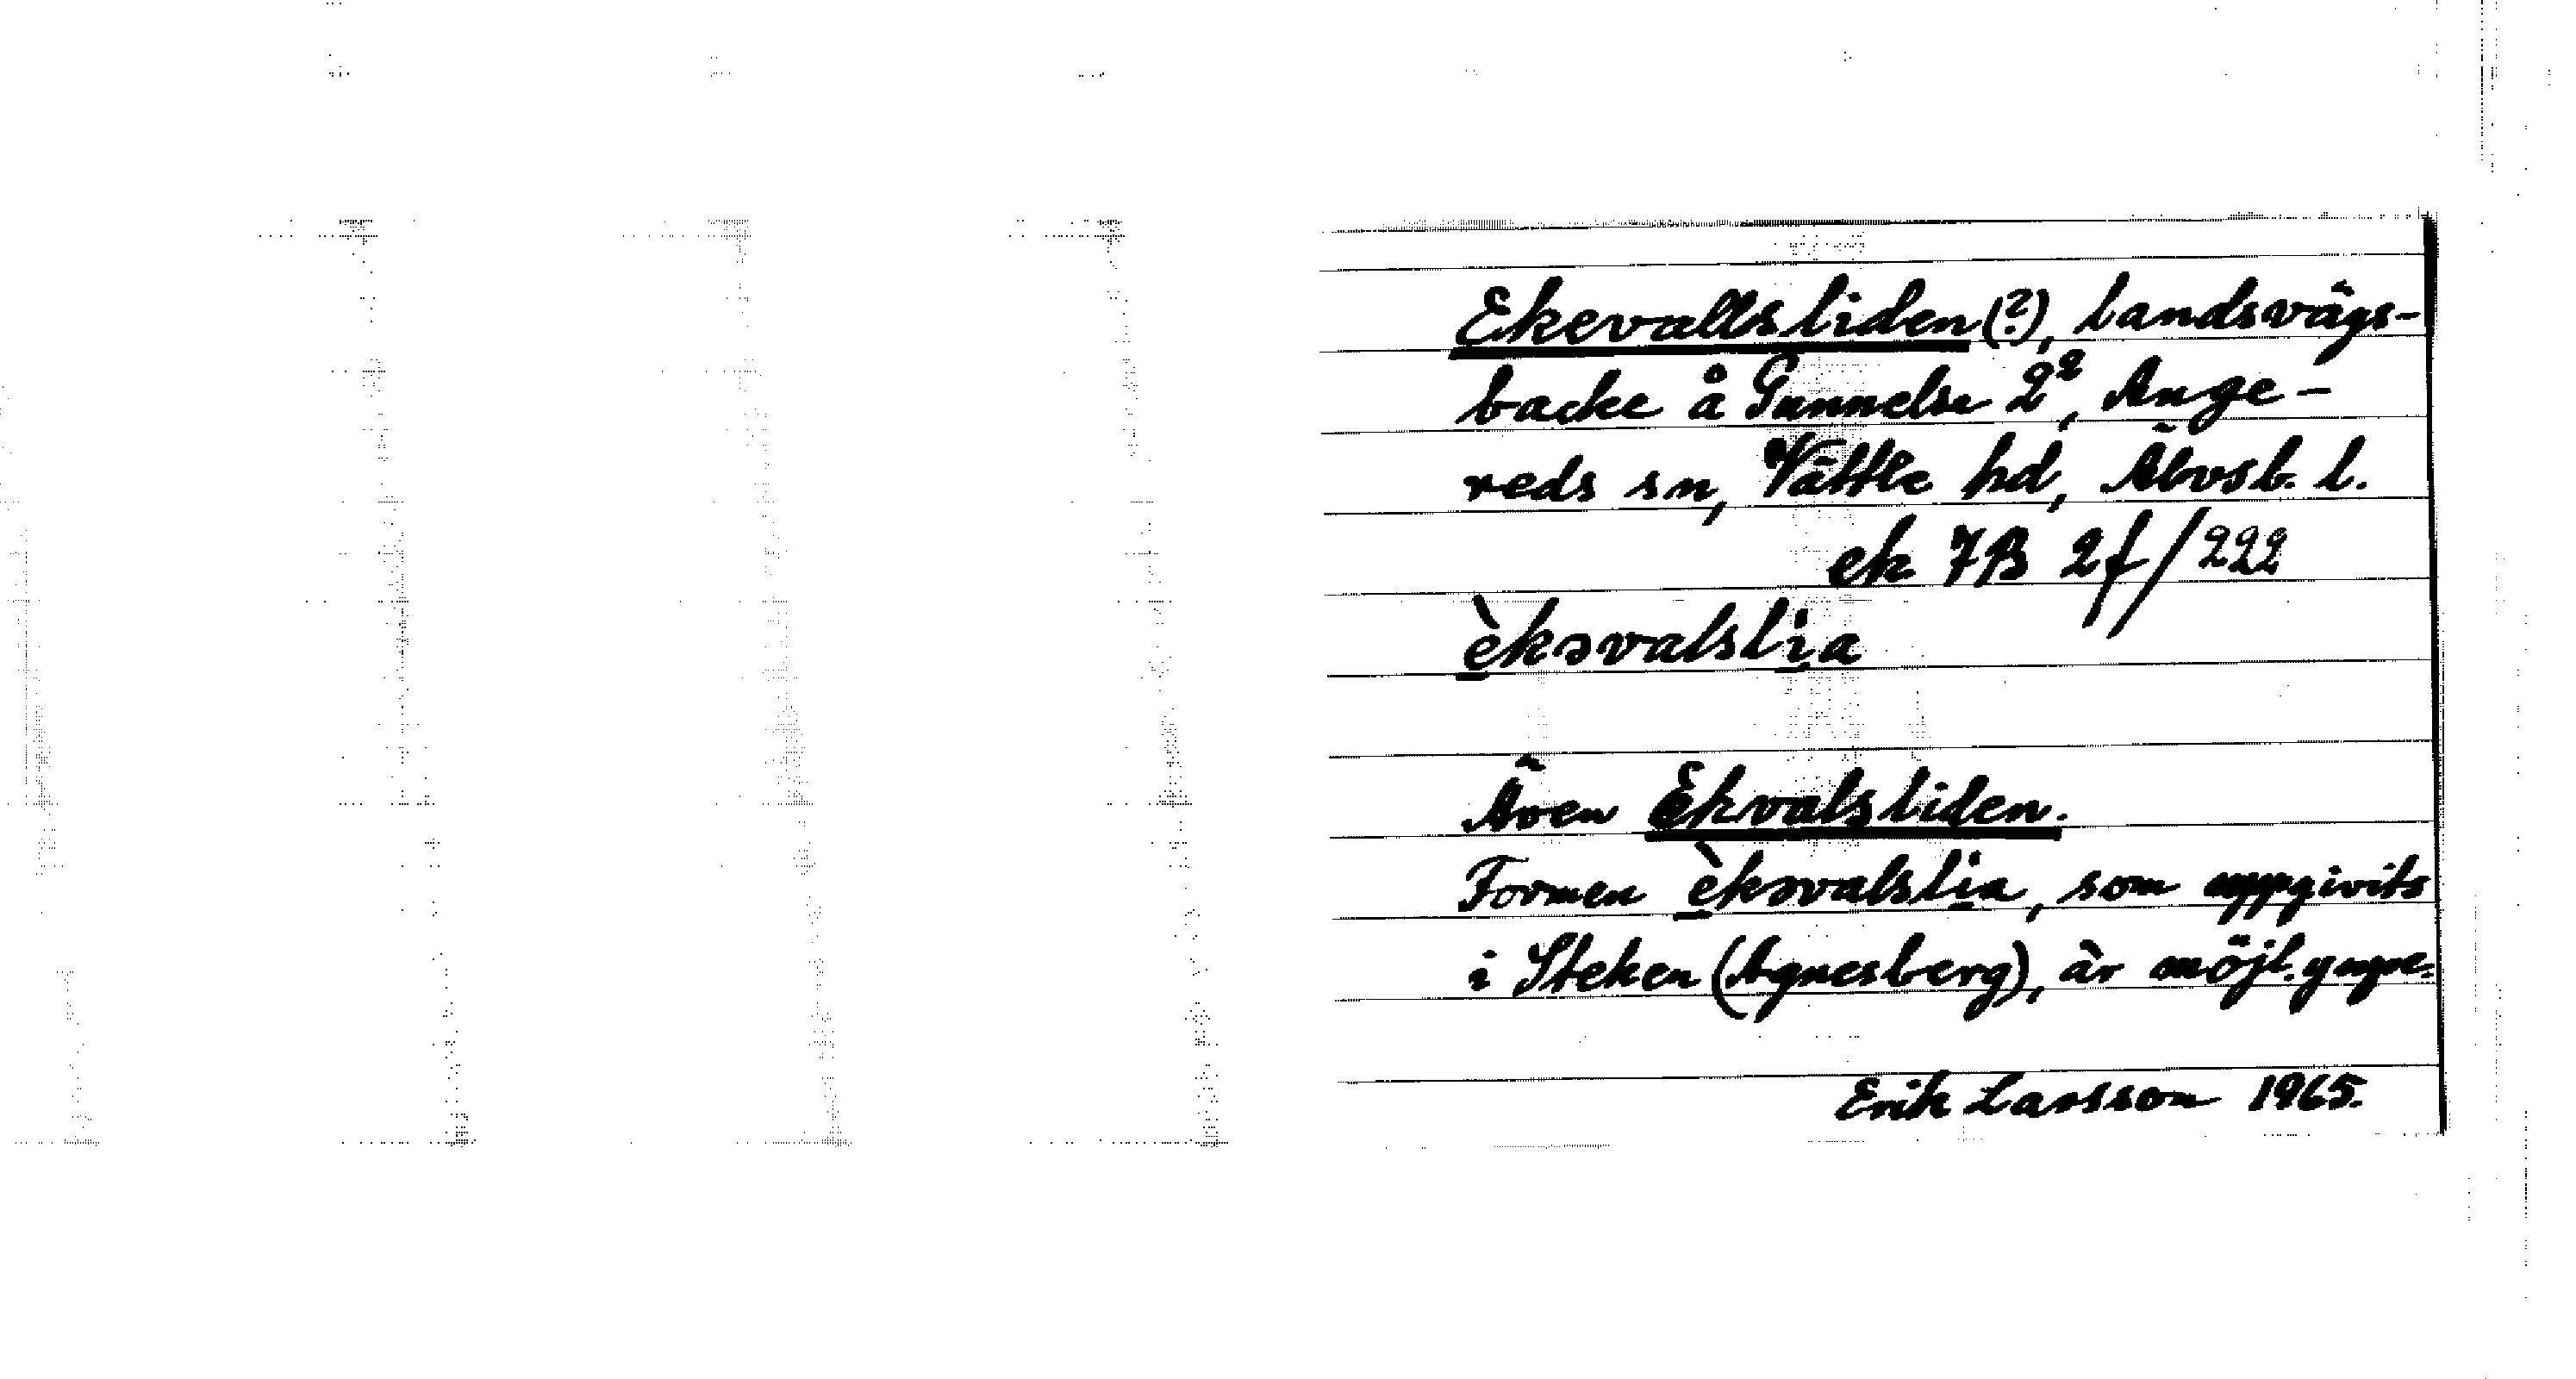 Ekevallsliden (?), landsvägs-
backe å Gunnelse 2², Ange-
reds sn, Vättle hd, Älvsb. l.
ek 7B 2f/222
èkəvalslia
Även Ekvalsliden.
Formen èkəvalslia, som uppgivits
i Steken (Agnesberg), är möjl. yngre.
Erik Larsson 1965.